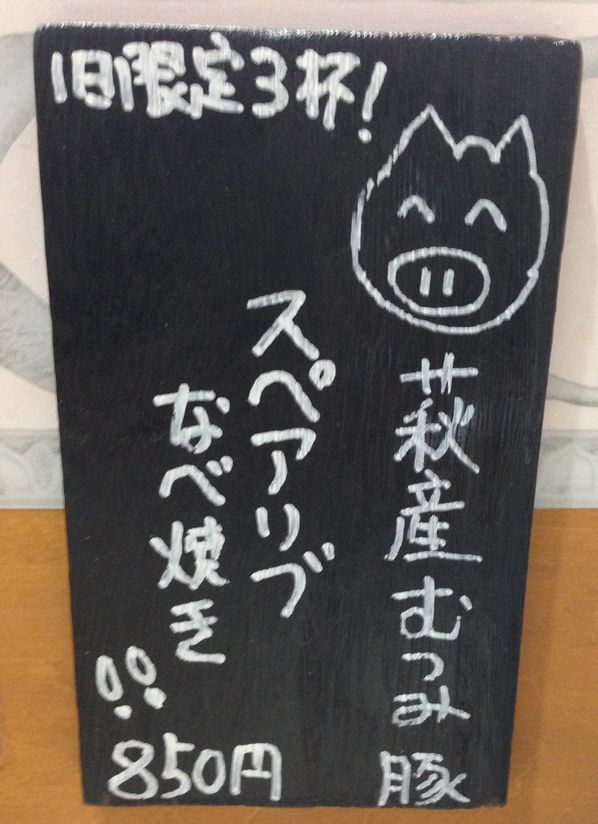 1日限定3杯!
萩産むつみ豚
スペアリブ
なべ焼き!!
850円